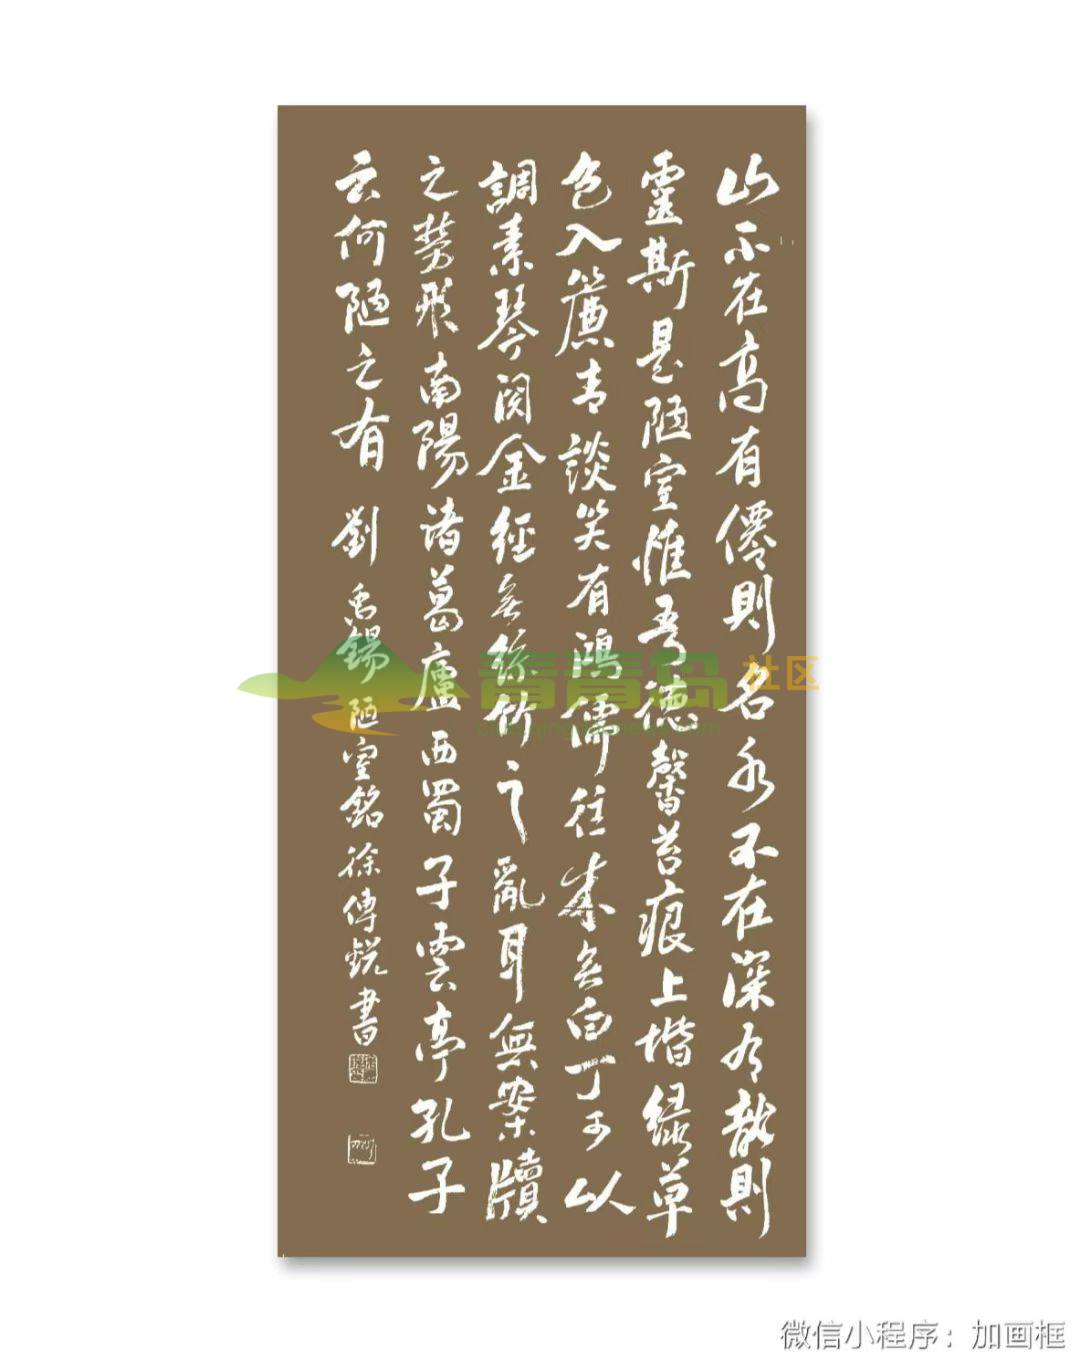 山不在高有僊則名水不在深有龍則
靈斯是陋室惟吾德馨苔痕上堦緑草
色入簾青談笑有鴻儒往来無白丁可以
調素琴閱金經無絲竹之亂耳無案牘
之勞形南陽诸葛廬西蜀子雲亭孔子
云何陋之有 劉禹錫陋室銘徐傳鋭書
青青岛社区
微信小程序：加画框